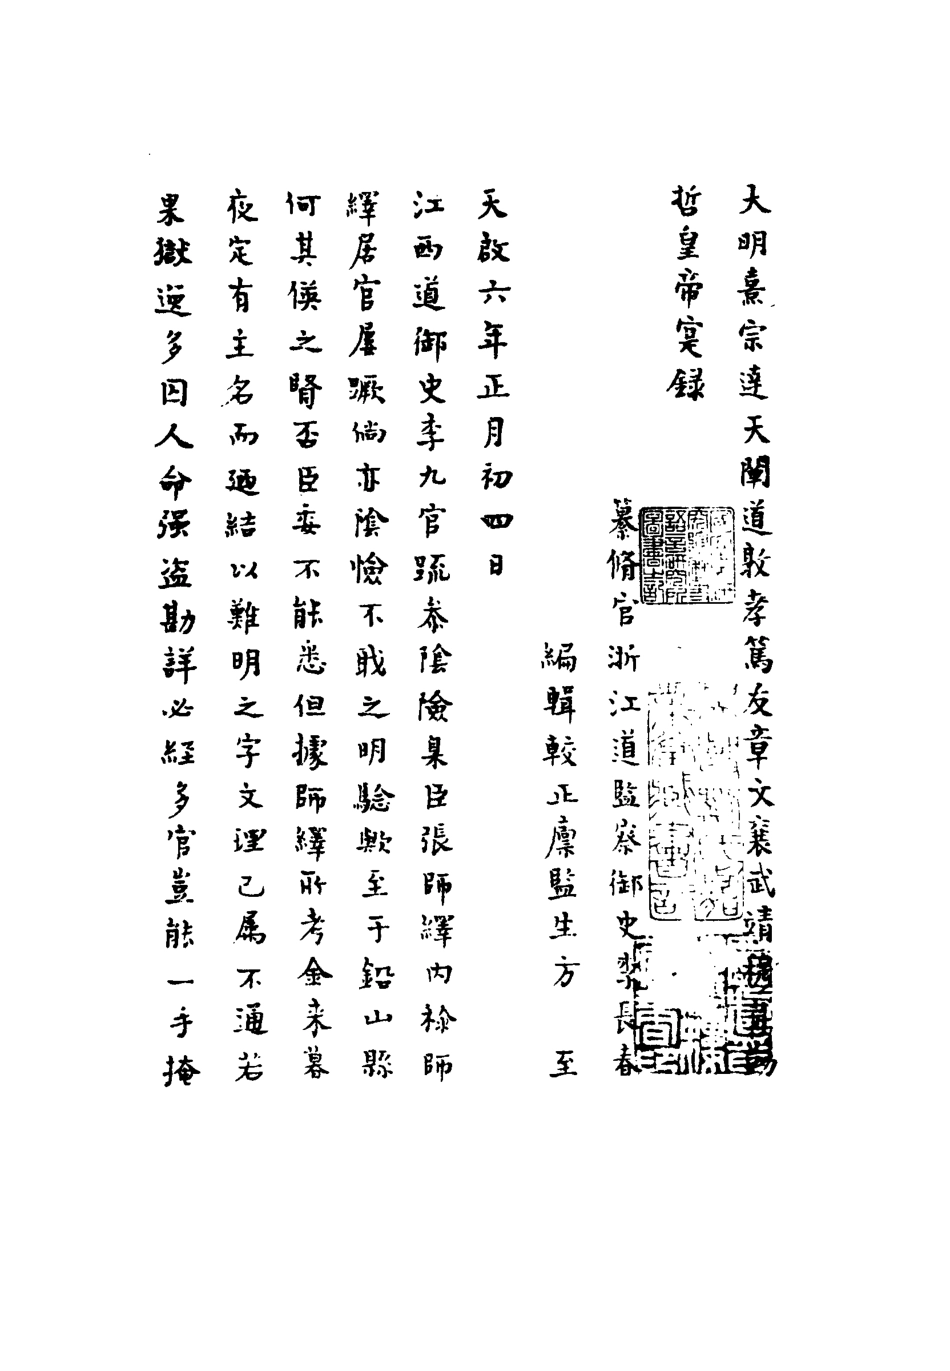 大明熹宗達天闡道敦孝篤友章文襄武靖穆莊勤
哲皇帝寔録
纂脩官浙江道監察御史李長春
編輯較正廪監生方　至
天啟六年正月初四日
江西道御史李九官疏叅陰險臬臣張師繹內袗師
繹居官屢蹶倘亦陰憸不戢之明驗歟至于鉛山縣
何其偀之賢否臣委不能悉但據師繹所考金来暮
夜定有主名而廼結以難明之字文理已属不通若
果獄逆多囚人命强盗勘詳必經多官豈能一手掩